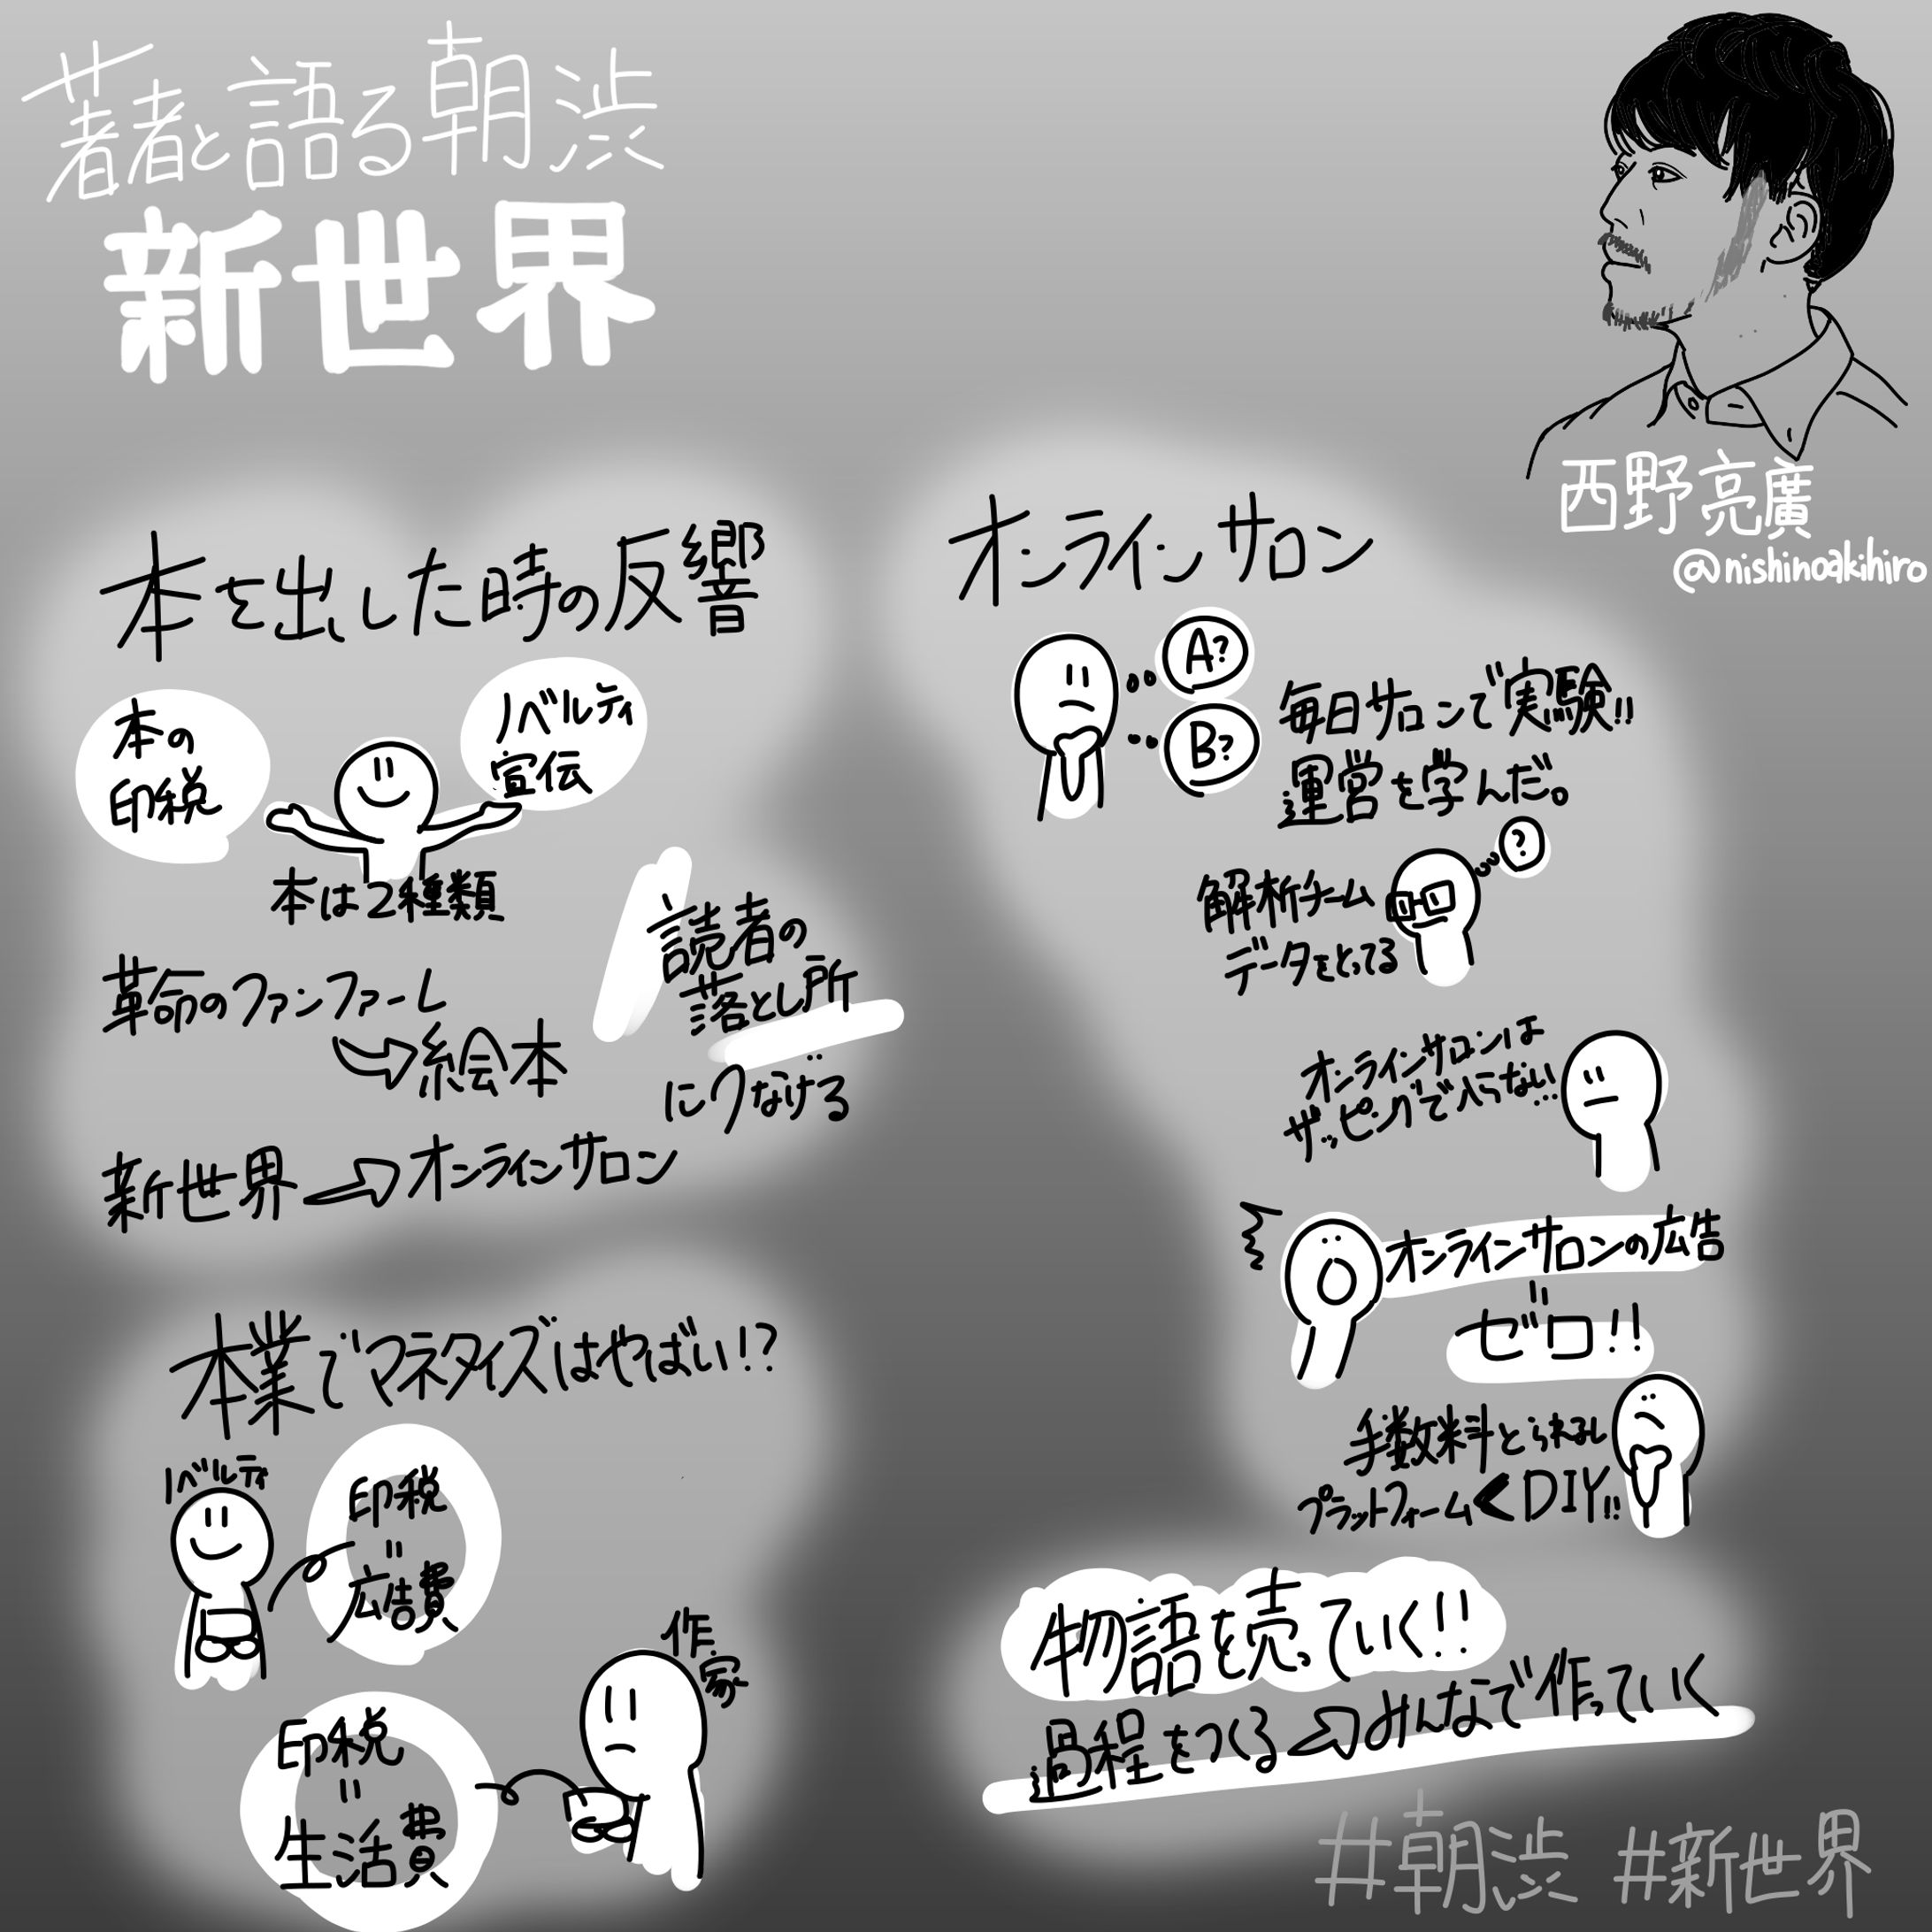 著者と語る朝渋
新世界
西野亮廣
@nishinoakihiro
本を出した時の反響
本の
印税
ノベルティ
宣伝
本は2種類
革命のファンファーレ
絵本
新世界
オンラインサロン
読者の
落とし所
につなげる
本業でマネタイズはやばい!?
ノベルティ
印税
=
広告費
作家
印税
=
生活費
オンラインサロン
A?
B?
毎日サロンで実験!!
運営を学んだ。
解析チーム
データをとってる
?
オンラインサロンは
ザッピングで入らない…
オンラインサロンの広告
=
ゼロ!!
手数料とられるし
プラットフォーム<DIY!!
物語を売っていく!!
過程をつくる⇨みんなで作っていく
#朝渋 #新世界